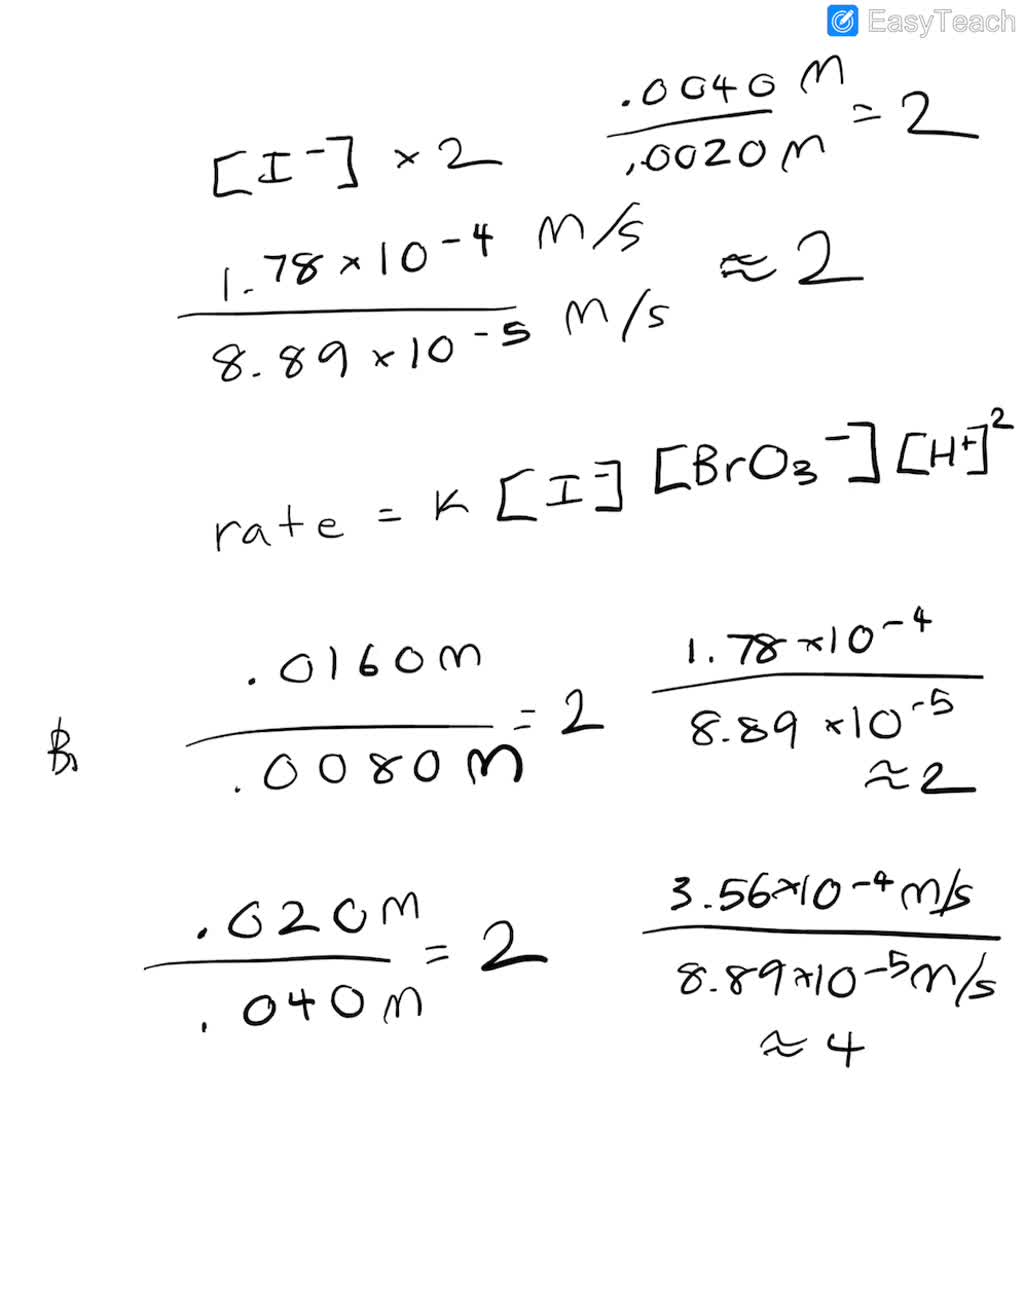 EasyTeach
[I⁻] × 2
.0040 M
.0020 M
= 2
1.78 × 10⁻⁴ M/s
8.89 × 10⁻⁵ M/s
≈ 2
rate = K [I⁻] [BrO₃⁻] [H⁺]²
B.
.0160 M
.0080 M
= 2
1.78 × 10⁻⁴
8.89 × 10⁻⁵
≈ 2
.020 M
.040 M
= 2
3.56 × 10⁻⁴ M/s
8.89 × 10⁻⁵ M/s
≈ 4